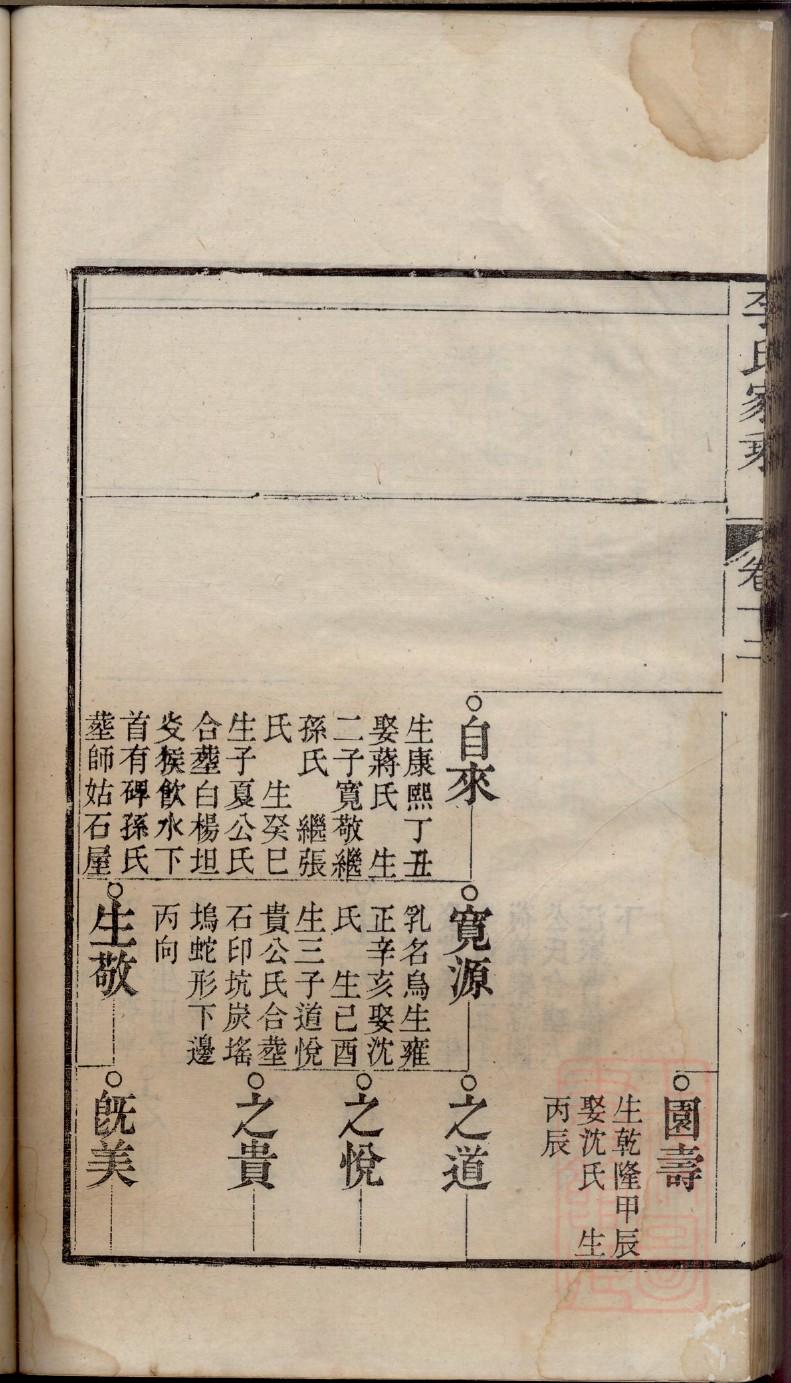 李氏家乘
卷十二
園壽
生乾隆甲辰
娶沈氏 生
丙辰
自來
生康熙丁丑
娶蔣氏 生
二子寬敬繼
孫氏 繼張
氏 生癸巳
生子夏公氏
合塟白楊坦
㱾猴飲水下
首有碑孫氏
塟師姑石屋
寬源
乳名烏生雍
正辛亥娶沈
氏 生己酉
生三子道悅
貴公氏合塟
石印坑炭塎
塢蛇形下邊
丙向
生敬
之道
之悅
之貴
旣美